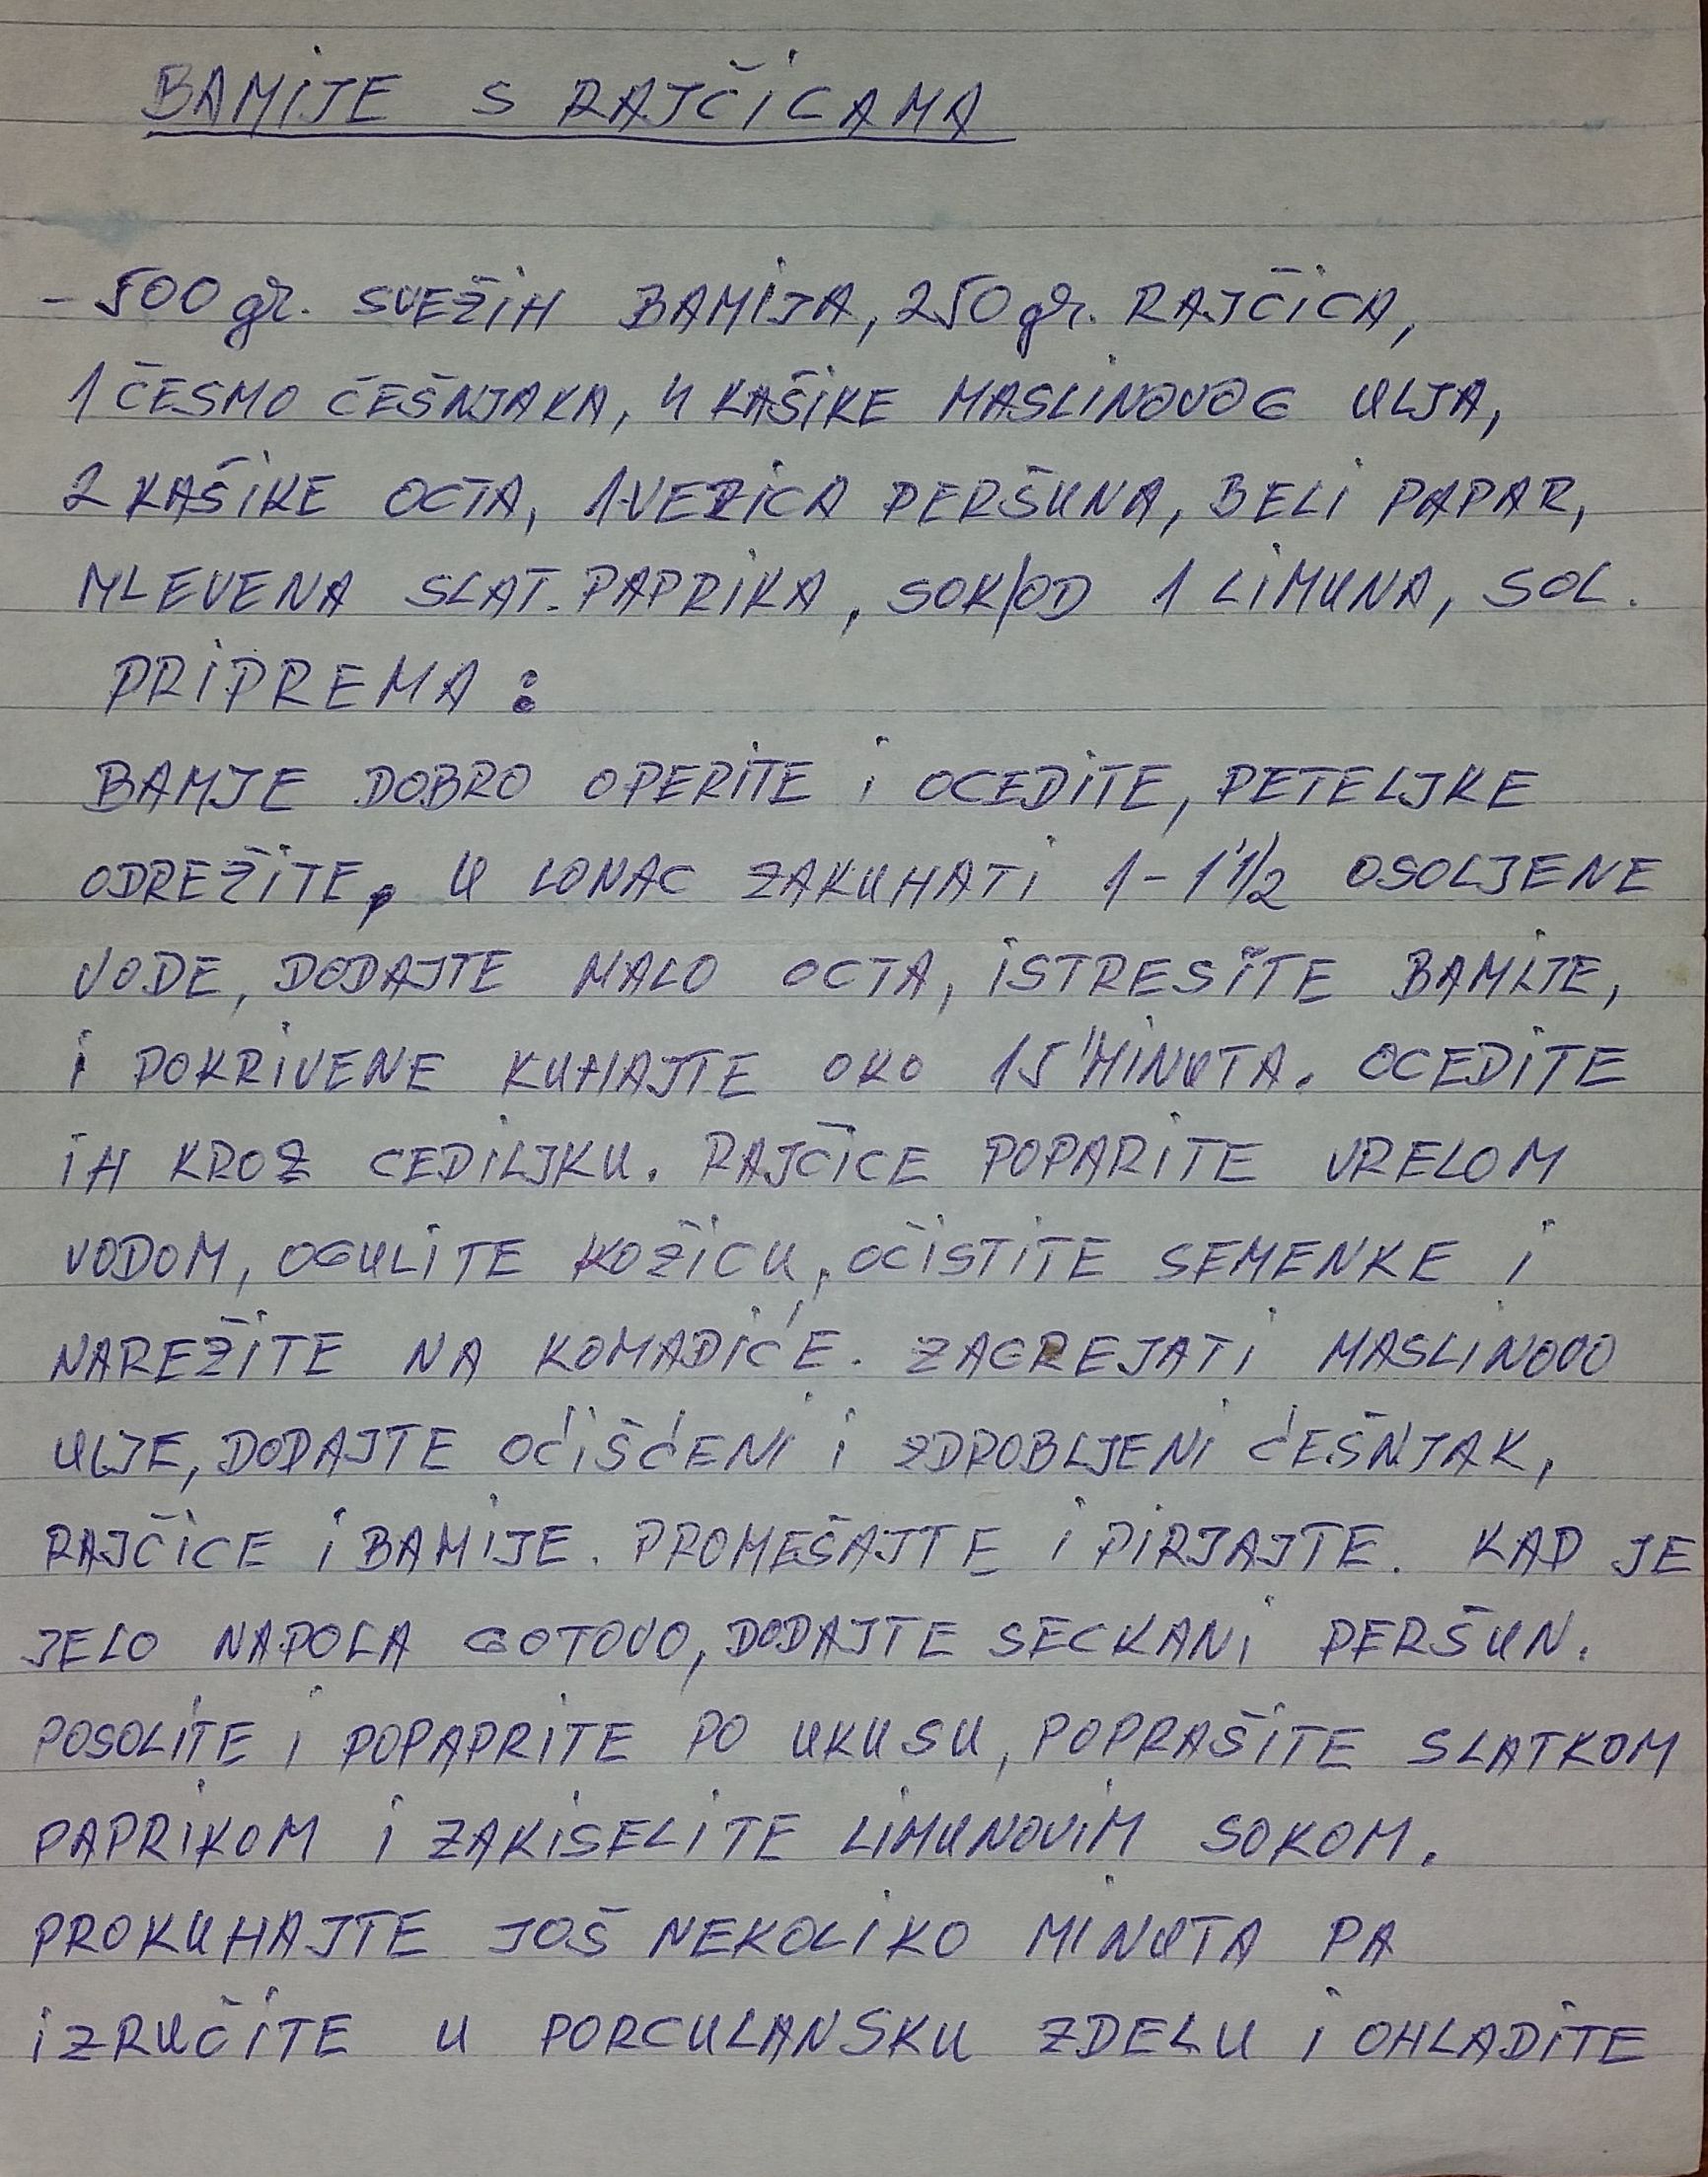 BAMIJE S RAJČICAMA
- 500 gr. SVEŽIH BAMIJA, 250 gr. RAJČICA,
1 ČESMO ČEŠNJAKA, 4 KAŠIKE MASLINOVOG ULJA,
2 KAŠIKE OCTA, 1 VEZICA PERŠUNA, BELI PAPAR,
MLEVENA SLAT. PAPRIKA, SOK/OD 1 LIMUNA, SOL.
PRIPREMA:
BAMJE DOBRO OPERITE I OCEDITE, PETELJKE
ODREŽITE, U LONAC ZAKUHATI 1-1 1/2 OSOLJENE
VODE, DODAJTE MALO OCTA, ISTRESITE BAMIJE,
I POKRIVENE KUHAJTE OKO 15' MINUTA. OCEDITE
IH KROZ CEDILJKU. RAJČICE POPARITE VRELOM
VODOM, OGULITE KOŽICU, OČISTITE SEMENKE I
NAREŽITE NA KOMADIĆE. ZAGREJATI MASLINOVO
ULJE, DODAJTE OĆIŠĆENI I ZDROBLJENI ĆEŠNJAK,
RAJČICE I BAMIJE. PROMEŠAJTE I PIRJAJTE. KAD JE
JELO NAPOLA GOTOVO, DODAJTE SECKANI PERŠUN.
POSOLITE I POPAPRITE PO UKUSU, POPRAŠITE SLATKOM
PAPRIKOM I ZAKISELITE LIMUNOVIM SOKOM.
PROKUHAJTE JOŠ NEKOLIKO MINUTA PA
IZRUČITE U PORCULANSKU ZDELU I OHLADITE